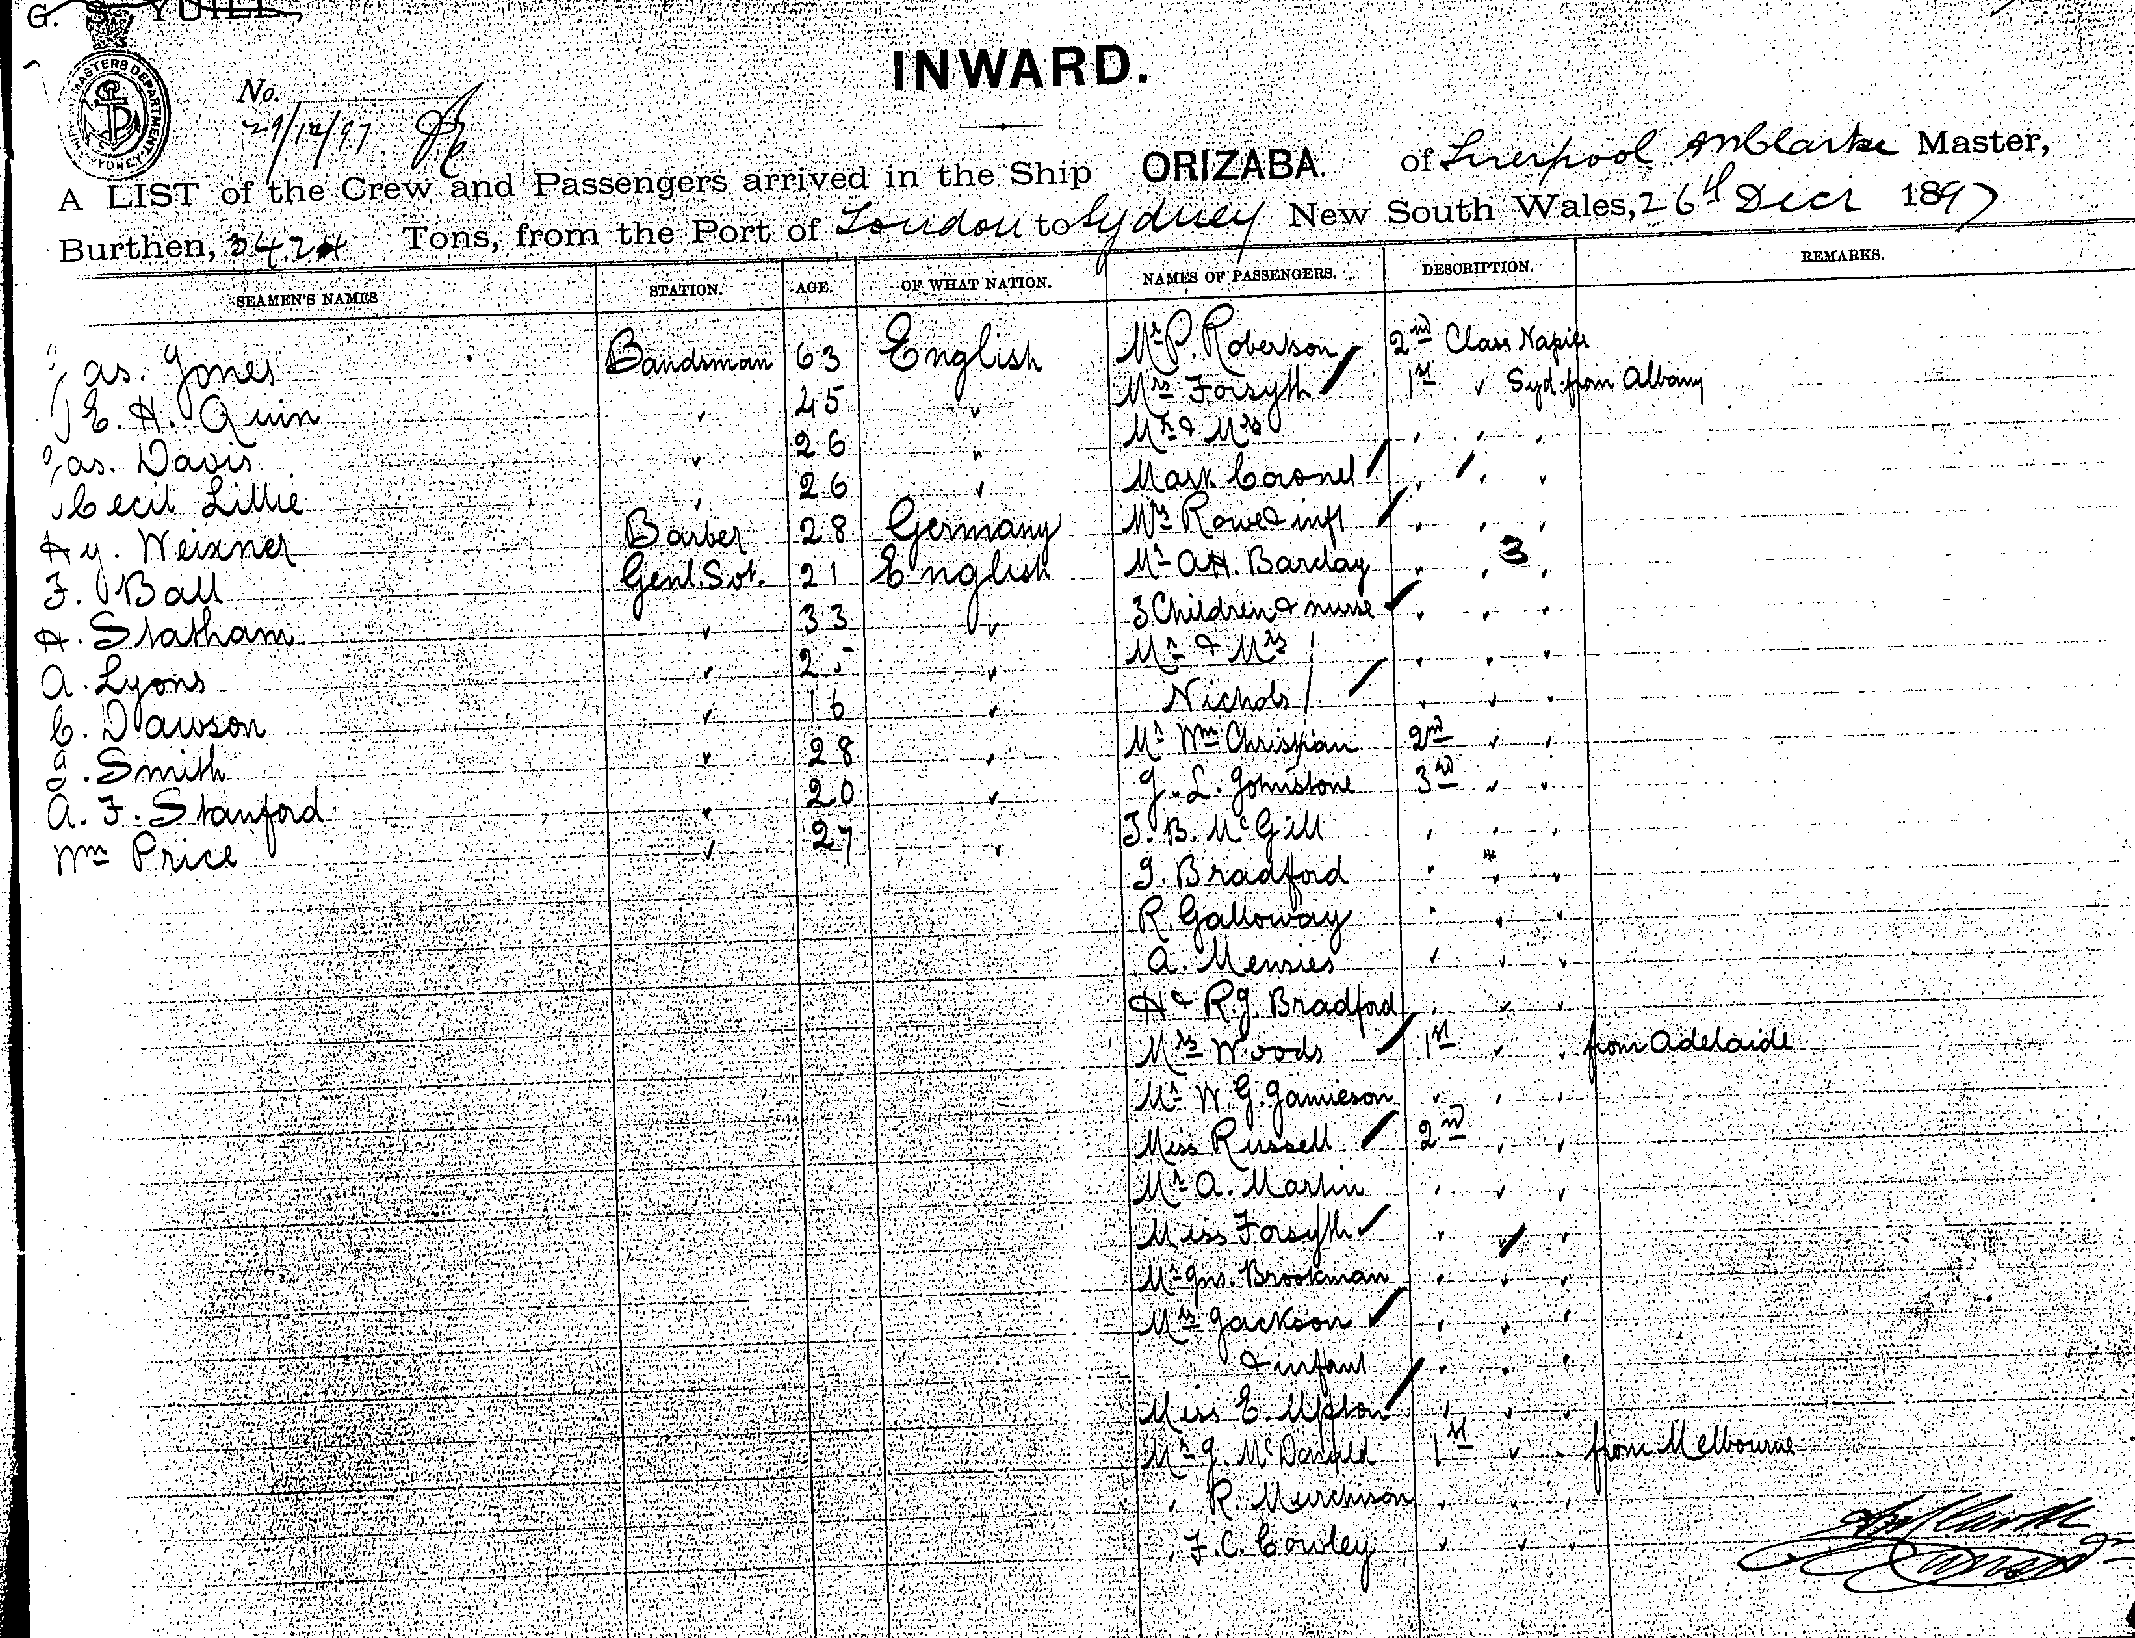 G. S. YUILL
MASTERS DEPARTMENT
SYDNEY
INWARD.
No.
29/12/97
A LIST of the Crew and Passengers arrived in the Ship ORIZABA. of Liverpool Master,
Burthen, 3424 Tons, from the Port of London to Sydney New South Wales, 26th Decr 1897
SEAMEN'S NAMES STATION. AGE. OF WHAT NATION. NAMES OF PASSENGERS. DESCRIPTION. REMARKS.
Jas. Jones Bandsman 63 English Mr P. Roberson 2nd Class Naples
E. H. Quin " 45 " Mrs Forsyth 1st " Syd. from Albany
Jas. Davis " 26 " Mr & Mrs " " "
Cecil Lillie " 26 " Mark Coronel " " "
Hy. Weixner Barber 28 Germany Mrs Rowe & inft " " "
F. Ball Genl. Svt. 21 English Mr A.H. Barclay " " 3 "
H. Statham " 33 " 3 Children & nurse " " "
A. Lyons " 25 " Mr & Mrs " " "
C. Dawson " 16 " Nichols " " "
J. Smith " 28 " Mr Wm Christian 2nd " "
A. F. Stanford " 20 " J. L. Johnstone 3rd " "
Wm Price " 27 " J. B. McGill " " "
J. Bradford " " "
R. Galloway " " "
A. Menzies " " "
H & R.J. Bradford " " "
Mrs Woods 1st " " from Adelaide
Mr W. G. Jamieson " " "
Miss Russell 2nd " "
Mr A. Martin " " "
Miss Forsyth " " "
Mr Jno. Brookman " " "
Mrs Jackson " " "
& infant " " "
Miss E. Upton " " "
Mr J. McDonald 1st " " from Melbourne
" R. Murchison " " "
" F. C. Cowley " " "